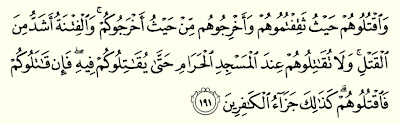 وَاقْتُلُوهُمْ حَيْثُ ثَقِفْتُمُوهُمْ وَأَخْرِجُوهُم مِّنْ حَيْثُ أَخْرَجُوكُمْ ۚ وَالْفِتْنَةُ أَشَدُّ مِنَ
الْقَتْلِ ۚ وَلَا تُقَاتِلُوهُمْ عِندَ الْمَسْجِدِ الْحَرَامِ حَتَّىٰ يُقَاتِلُوكُمْ فِيهِ ۖ فَإِن قَاتَلُوكُمْ
فَاقْتُلُوهُمْ ۗ كَذَٰلِكَ جَزَاءُ الْكَافِرِينَ ﴿١٩١﴾